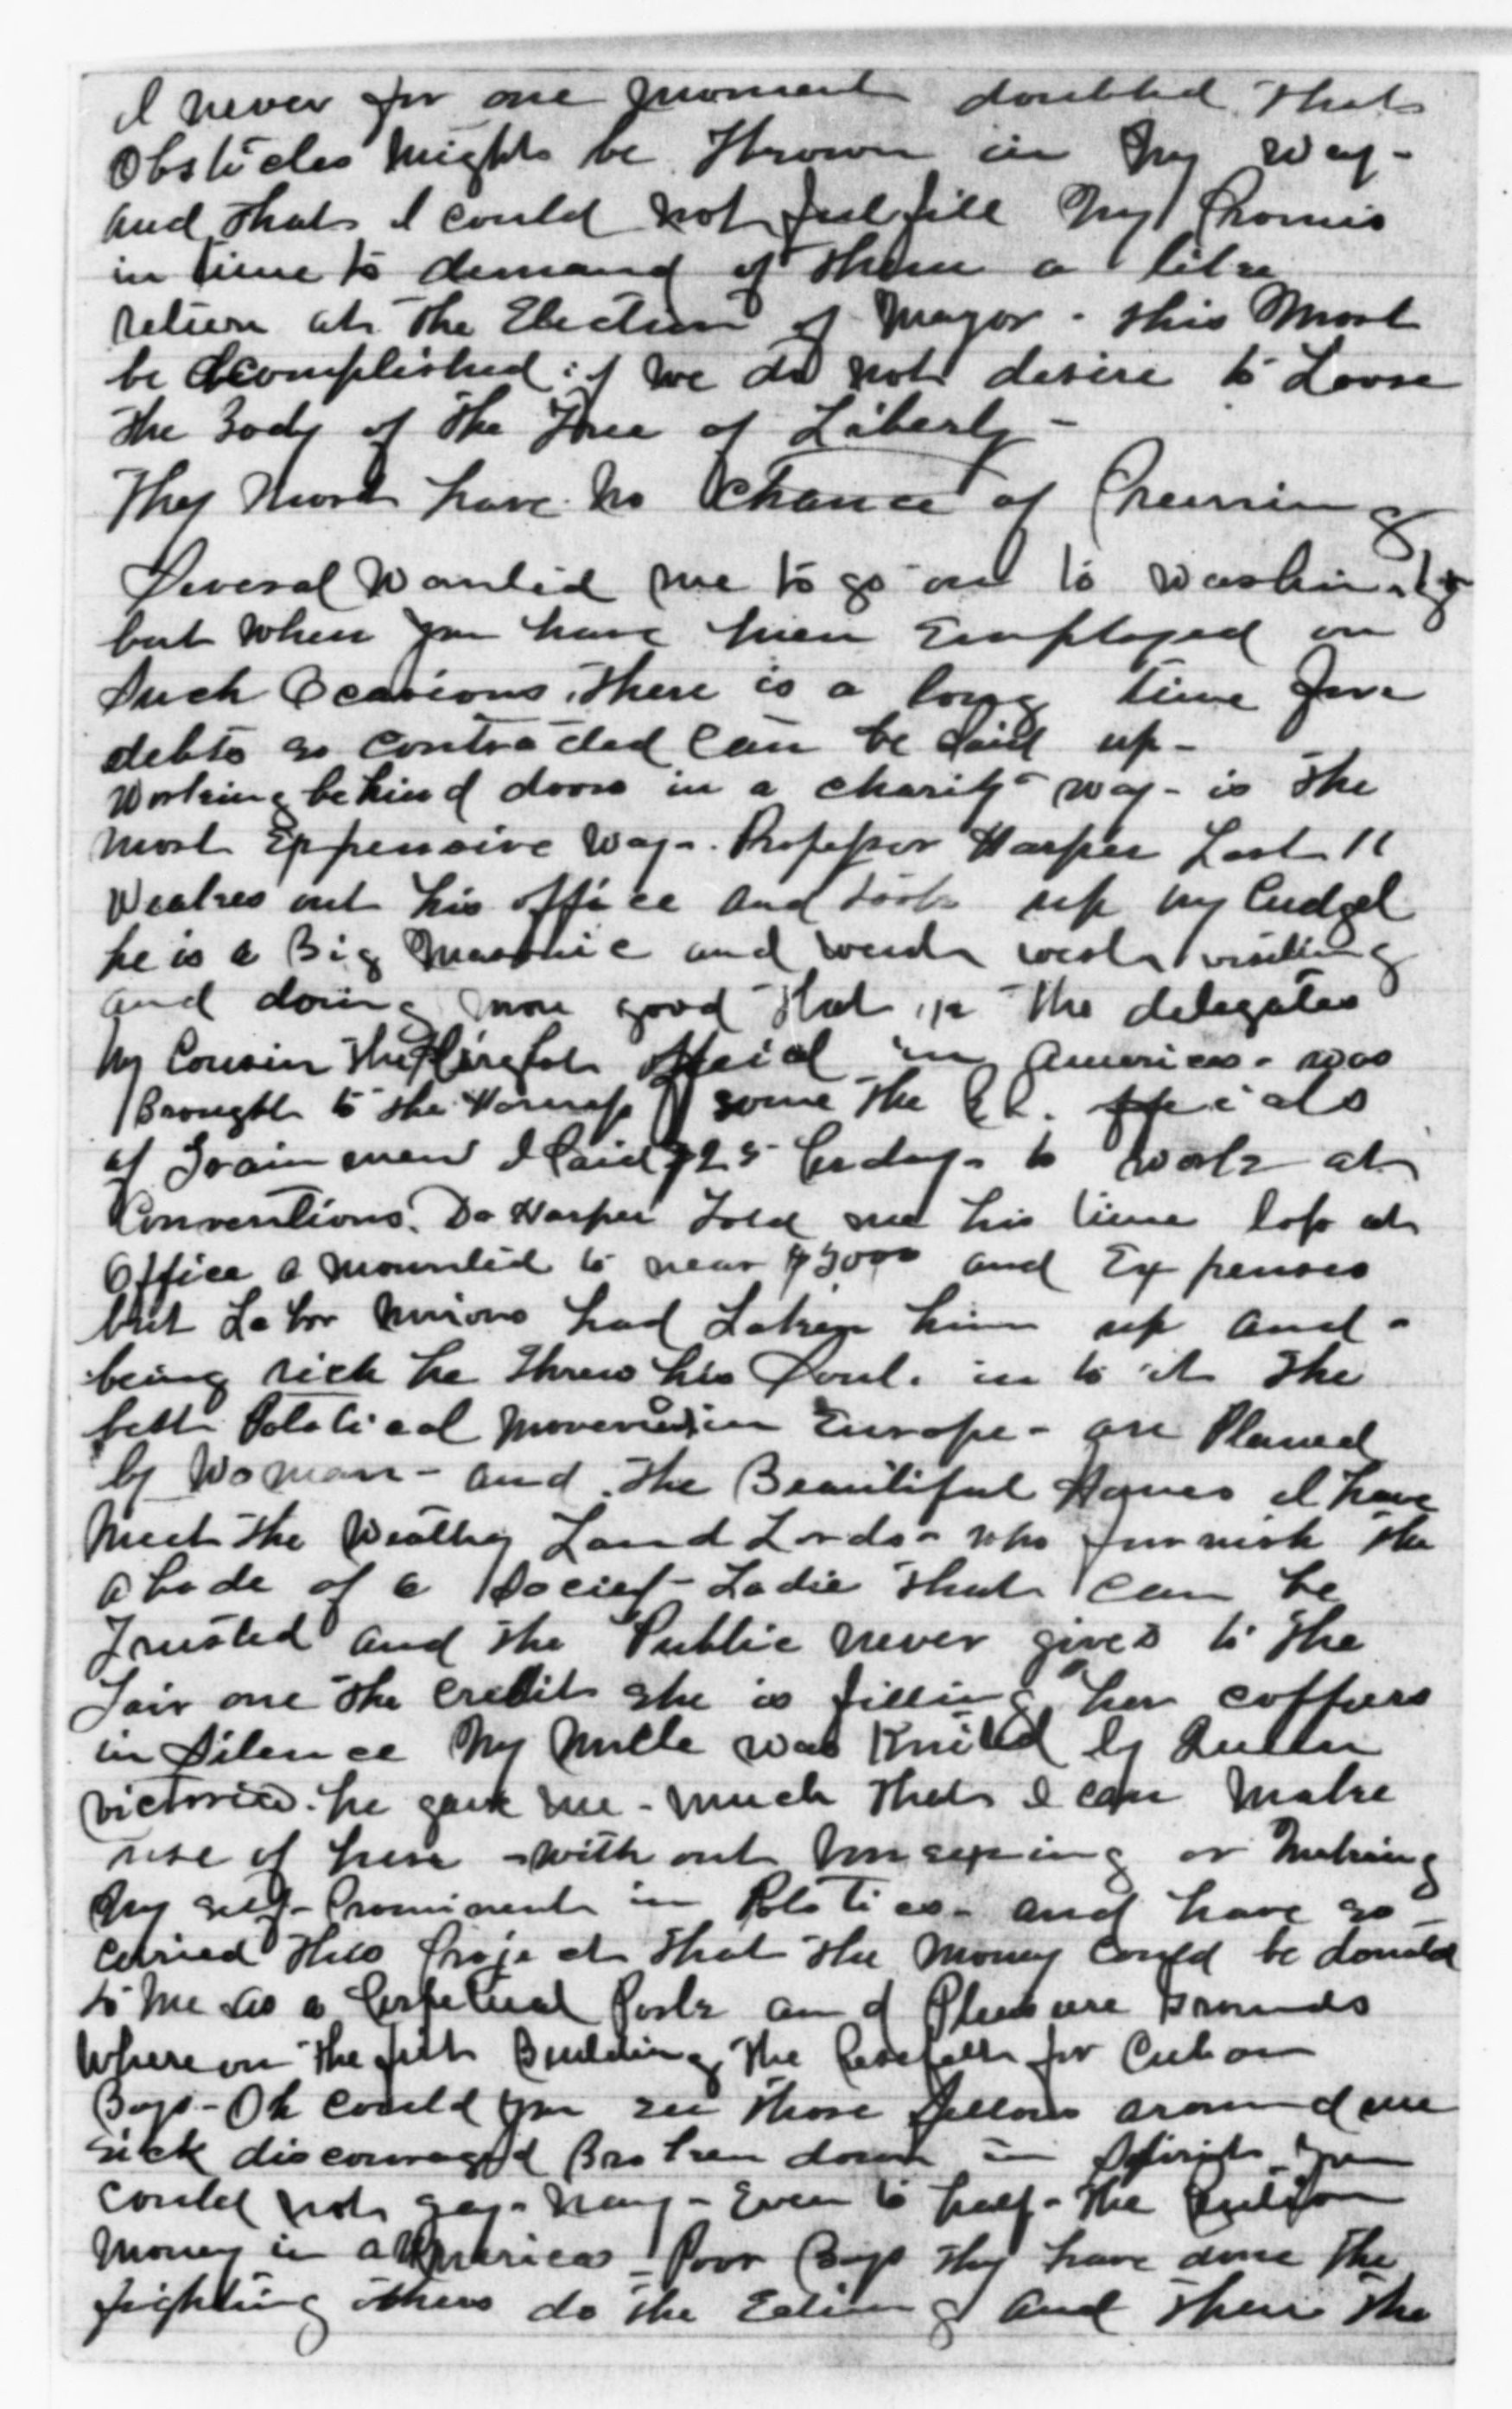 I never for one moment doubted that
Obsticles might be Thrown in my way -
and that I could not fulfill my Promis
in time to demand of them a like
return at the Election of Mayor - this Most
be Accomplished if we do not desire to Loose
the Body of the Tree of Liberty -
They Most have no Chance of Pruning
Several Wanted me to go on to Washington
but when you have men Employed on
Such Ocasions there is a long time fore
debts so contracted can be Paid up -
Working behind doors in a charity way - is the
most Expensive way - Professor Harper Lost 11
Weakes out his office and took up my Cudgel
he is a Big Masonic and went west visiting
and doing more good that in the delegates
my Cousin The Official in America - was
Brought to the some the R R. officials
of Train men I Paid $25 Per day - to work at
Conventions. Do Harper Told me his time loss at
Office a mounted to near $3000 and Expenses
but Labor Unions had Taken him up and -
being rich he threw his Soul. in to it The
best Polotical movements in Europe - are Planed
by Woman - and the Beautiful Homes I have
Meet the Wealthy Land Lords - who furnish the
abode of a Society Ladie that can be
Trusted and the Public never gives to the
fair one the credit she is filling her coffers
in Silence My Unkle was Knited by Queen
victoria. he gave me - much that I can make
use of here - with out or Making
My self - Prominent in Polotics - and have so
caried this Project that the Money could be donated
to me as a Perpetual Park and Pleasure Grounds
Where on the Building The for Cuban
Boys - Oh could you see those fellows around me
sick discouraged Broken down in Spirits you
could not say - Nay - Even to half - the
money in America - Poor Boys they have done the
fighting others do the Eating and then the